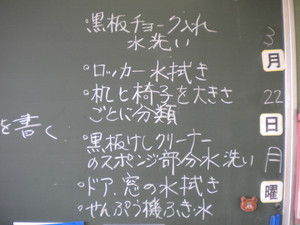 黒板チョーク入れ
水洗い
・ロッカー水拭き
・机と椅子を大きさ
ごとに分類
を書く
・黒板けしクリーナー
のスポンジ部分水洗い
・ドア、窓の水拭き
・せんぷう機ふき:水
3
月
22
日
月
曜